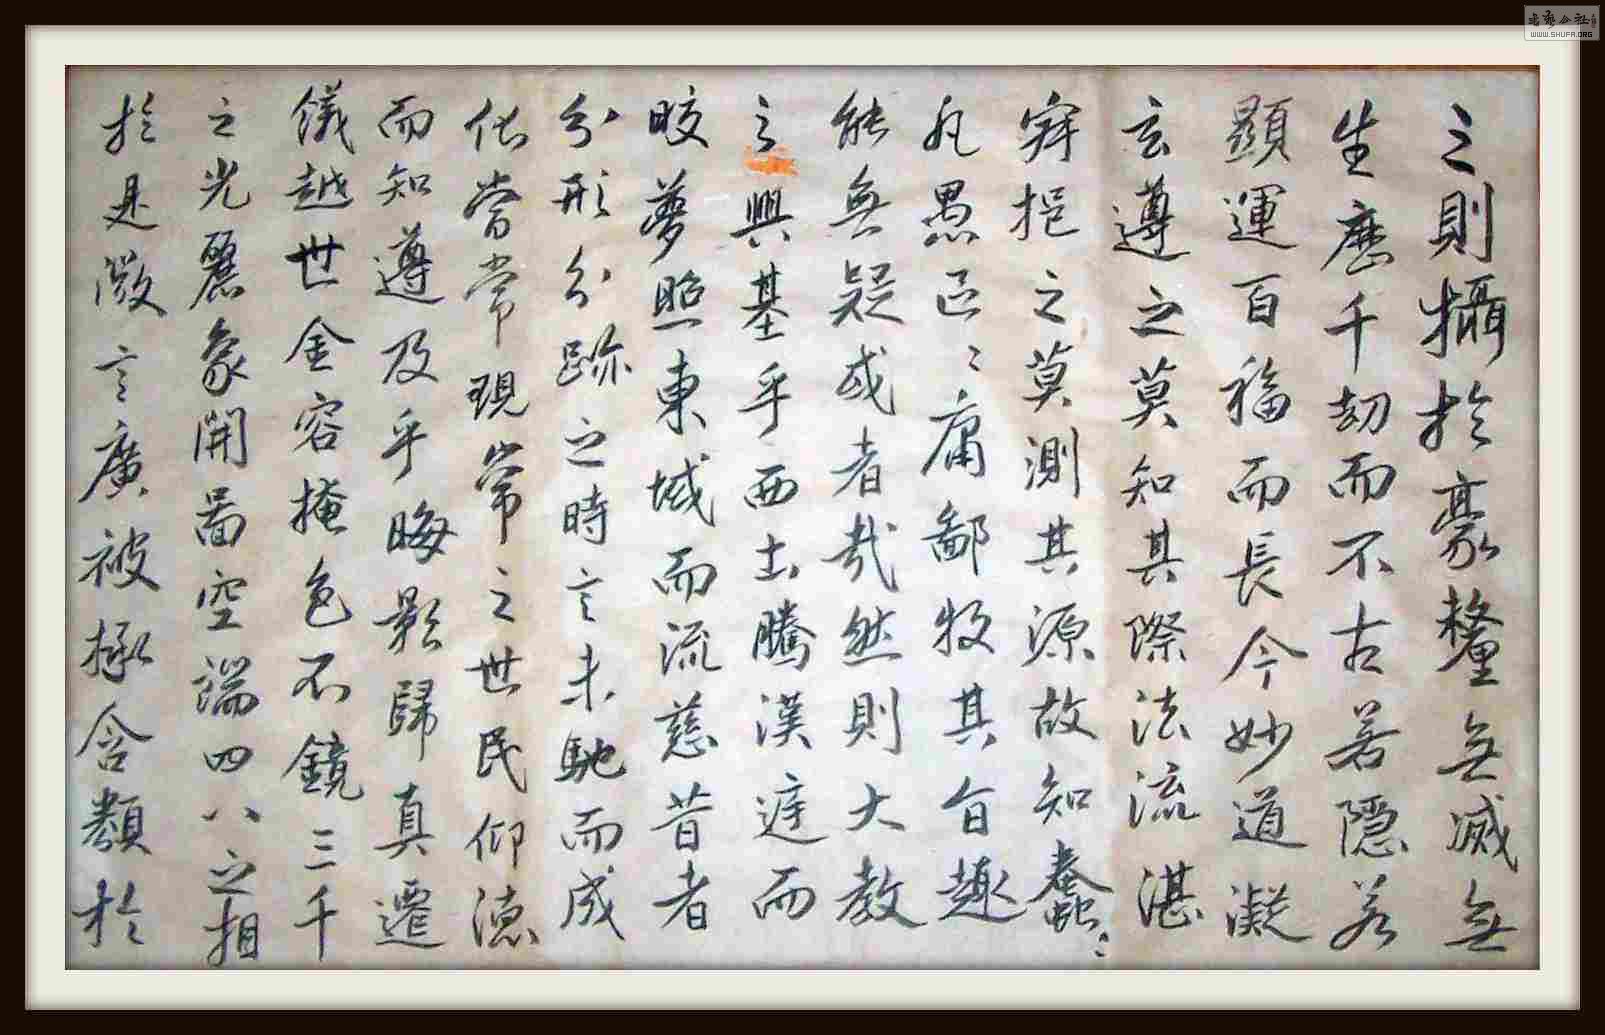 之則攝於豪釐無滅無
生歷千劫而不古若隱若
顯運百福而長今妙道凝
玄遵之莫知其際法流湛
寂挹之莫測其源故知蠢〻
凡愚區〻庸鄙投其旨趣
能無疑或者哉然則大教
之興基乎西土騰漢庭而
皎夢照東域而流慈昔者
分形分跡之時言未馳而成
化當常現常之世民仰德
而知遵及乎晦影歸真遷
儀越世金容掩色不鏡三千
之光麗象開圖空端四八之相
於是微言廣被拯含類於
WWW.SHUFA.ORG